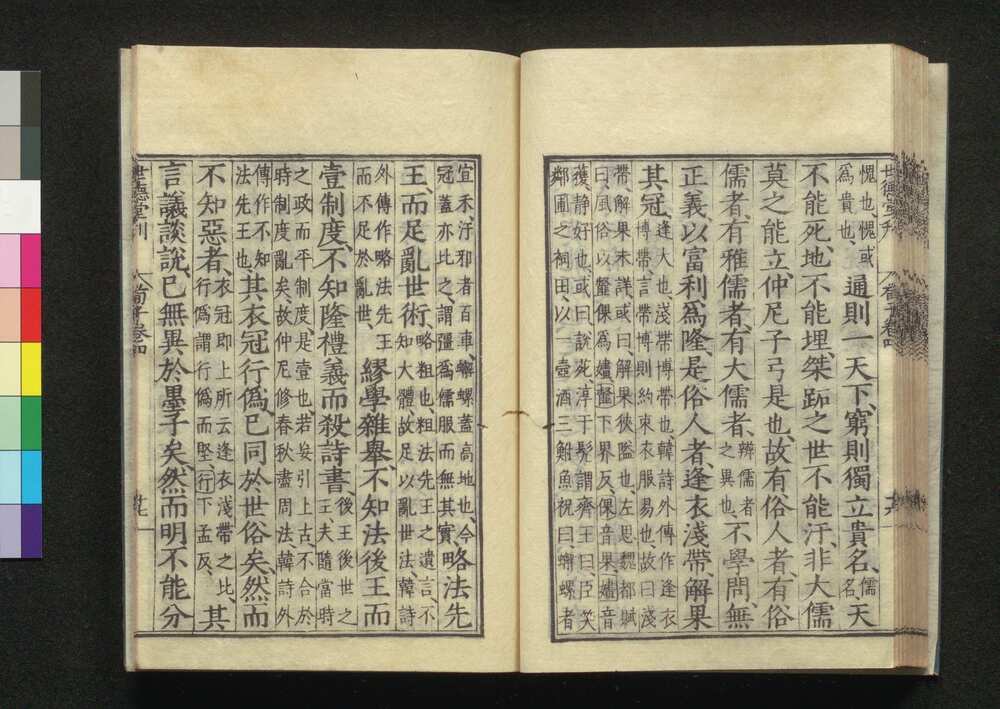 愧也、愧或
爲貴也、
通則一天下、窮則獨立貴名、儒名天
不能死、地不能埋、桀跖之世不能汙、非大儒
莫之能立、仲尼子弓是也、故有俗人者、有俗
儒者、有雅儒者、有大儒者、辨儒者之異也、不學問、無
正義、以富利爲隆、是俗人者、逢衣淺帶解果
其冠、
逢大也淺帶博帶也韓詩外傳作逢衣
博帶、言帶博則約束衣服易也故曰淺
帶、解果未詳或曰解果狹隘也、左思魏都賦
曰、風俗以韰倮爲嫿韰下界反、倮音果嫿音
獲、静好也、或曰、說苑淳于髡謂齊王曰臣笑
鄰圃之祠田、以一壺酒三鮒魚祝曰蠏螺者
宜禾、汙邪者百車、蠏螺蓋高地也、今
冠蓋亦比之、謂彊爲儒服而無其實、
略法先
王、而足亂世術、
略粗也、粗法先王之遺言、不
知大體、故足以亂世法韓詩
外傳作略法先王
而不足於亂世、
繆學雜舉、不知法後王而
壹制度、不知隆禮義而殺詩書、
後王後世之
王夫隨當時
之政而平制度、是壹也、若妄引上古不合於
時制度亂矣、故仲尼修春秋盡周法韓詩外
傳作不知
法先王也、
其衣冠行爲、已同於世俗矣、然而
不知惡者、
衣冠即上所云逢衣淺帶之比、
行爲謂行爲而堅、行下孟反、
其
言議談說、已無異於墨子矣、然而明不能分
世德堂刊
荀子卷四
廿七